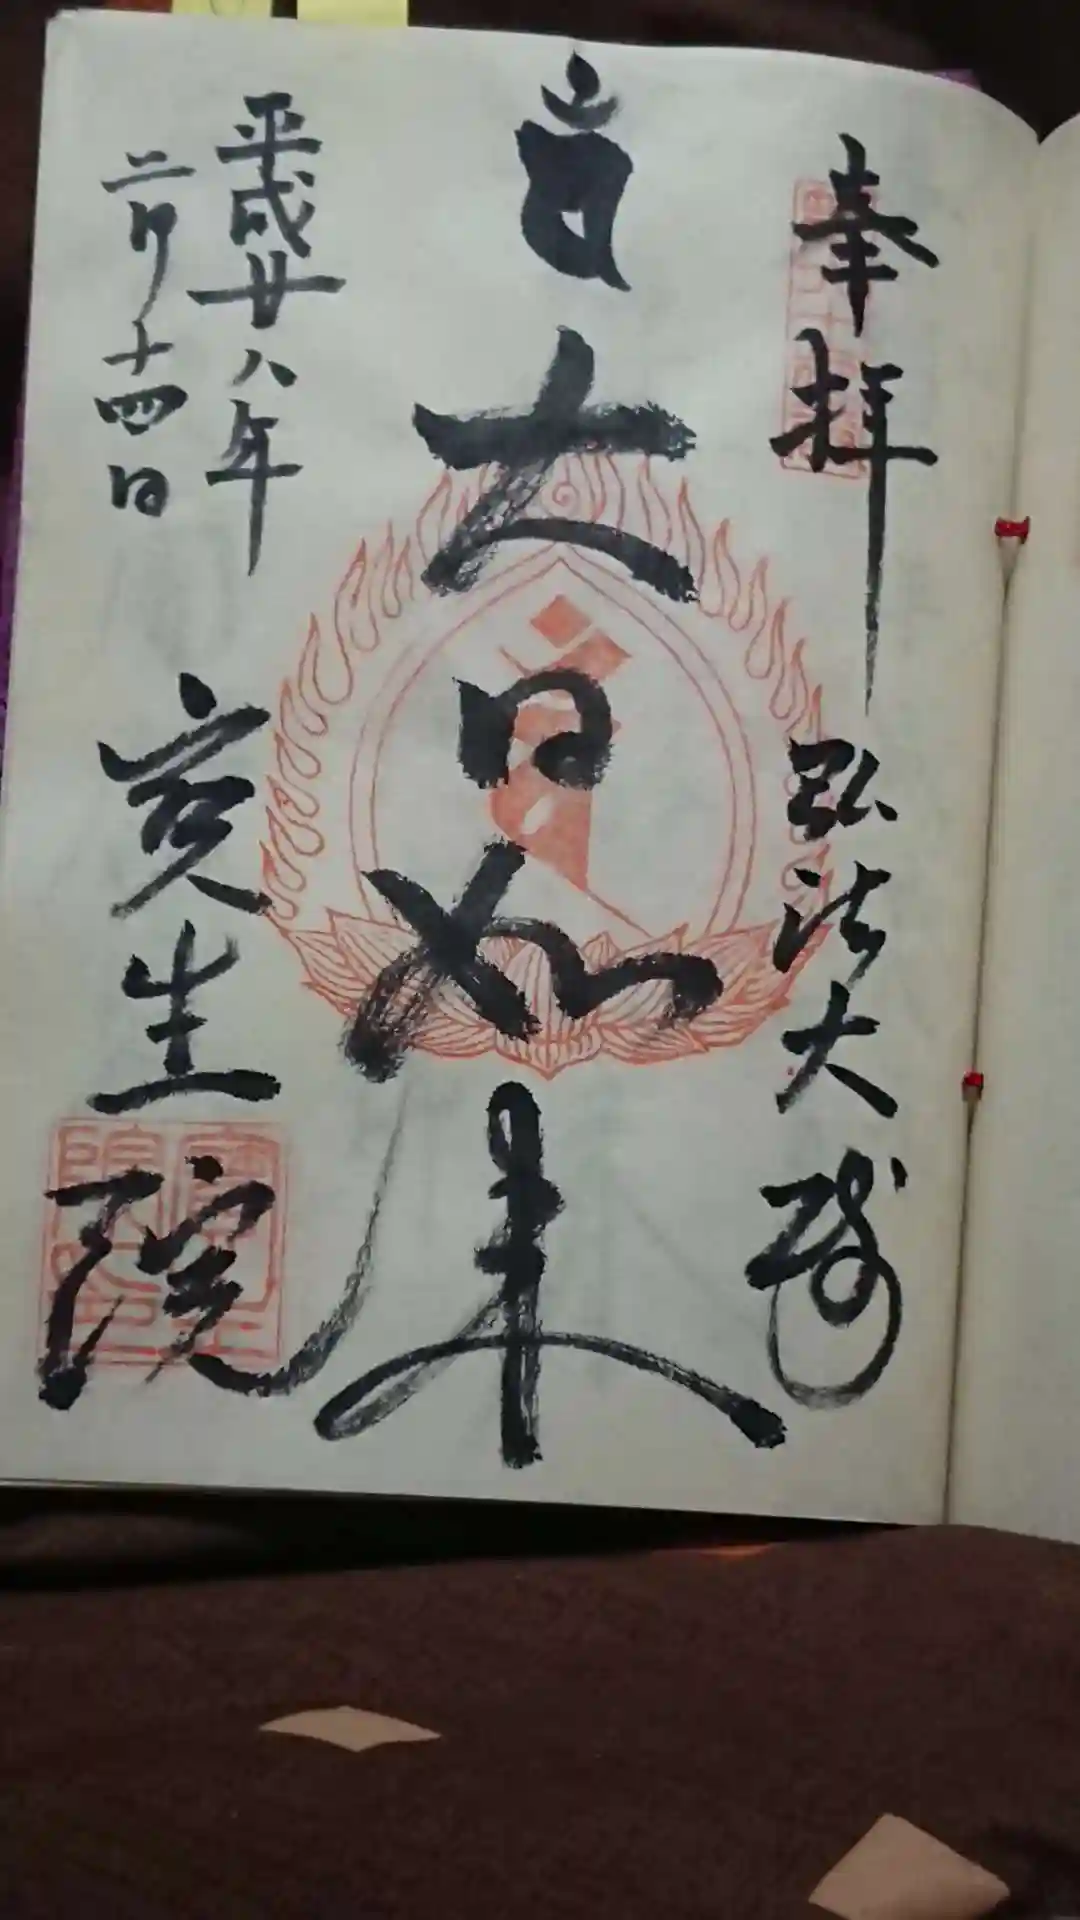 奉拝
弘法大師
大日如来
平成廿八年
二月十四日
宝生院